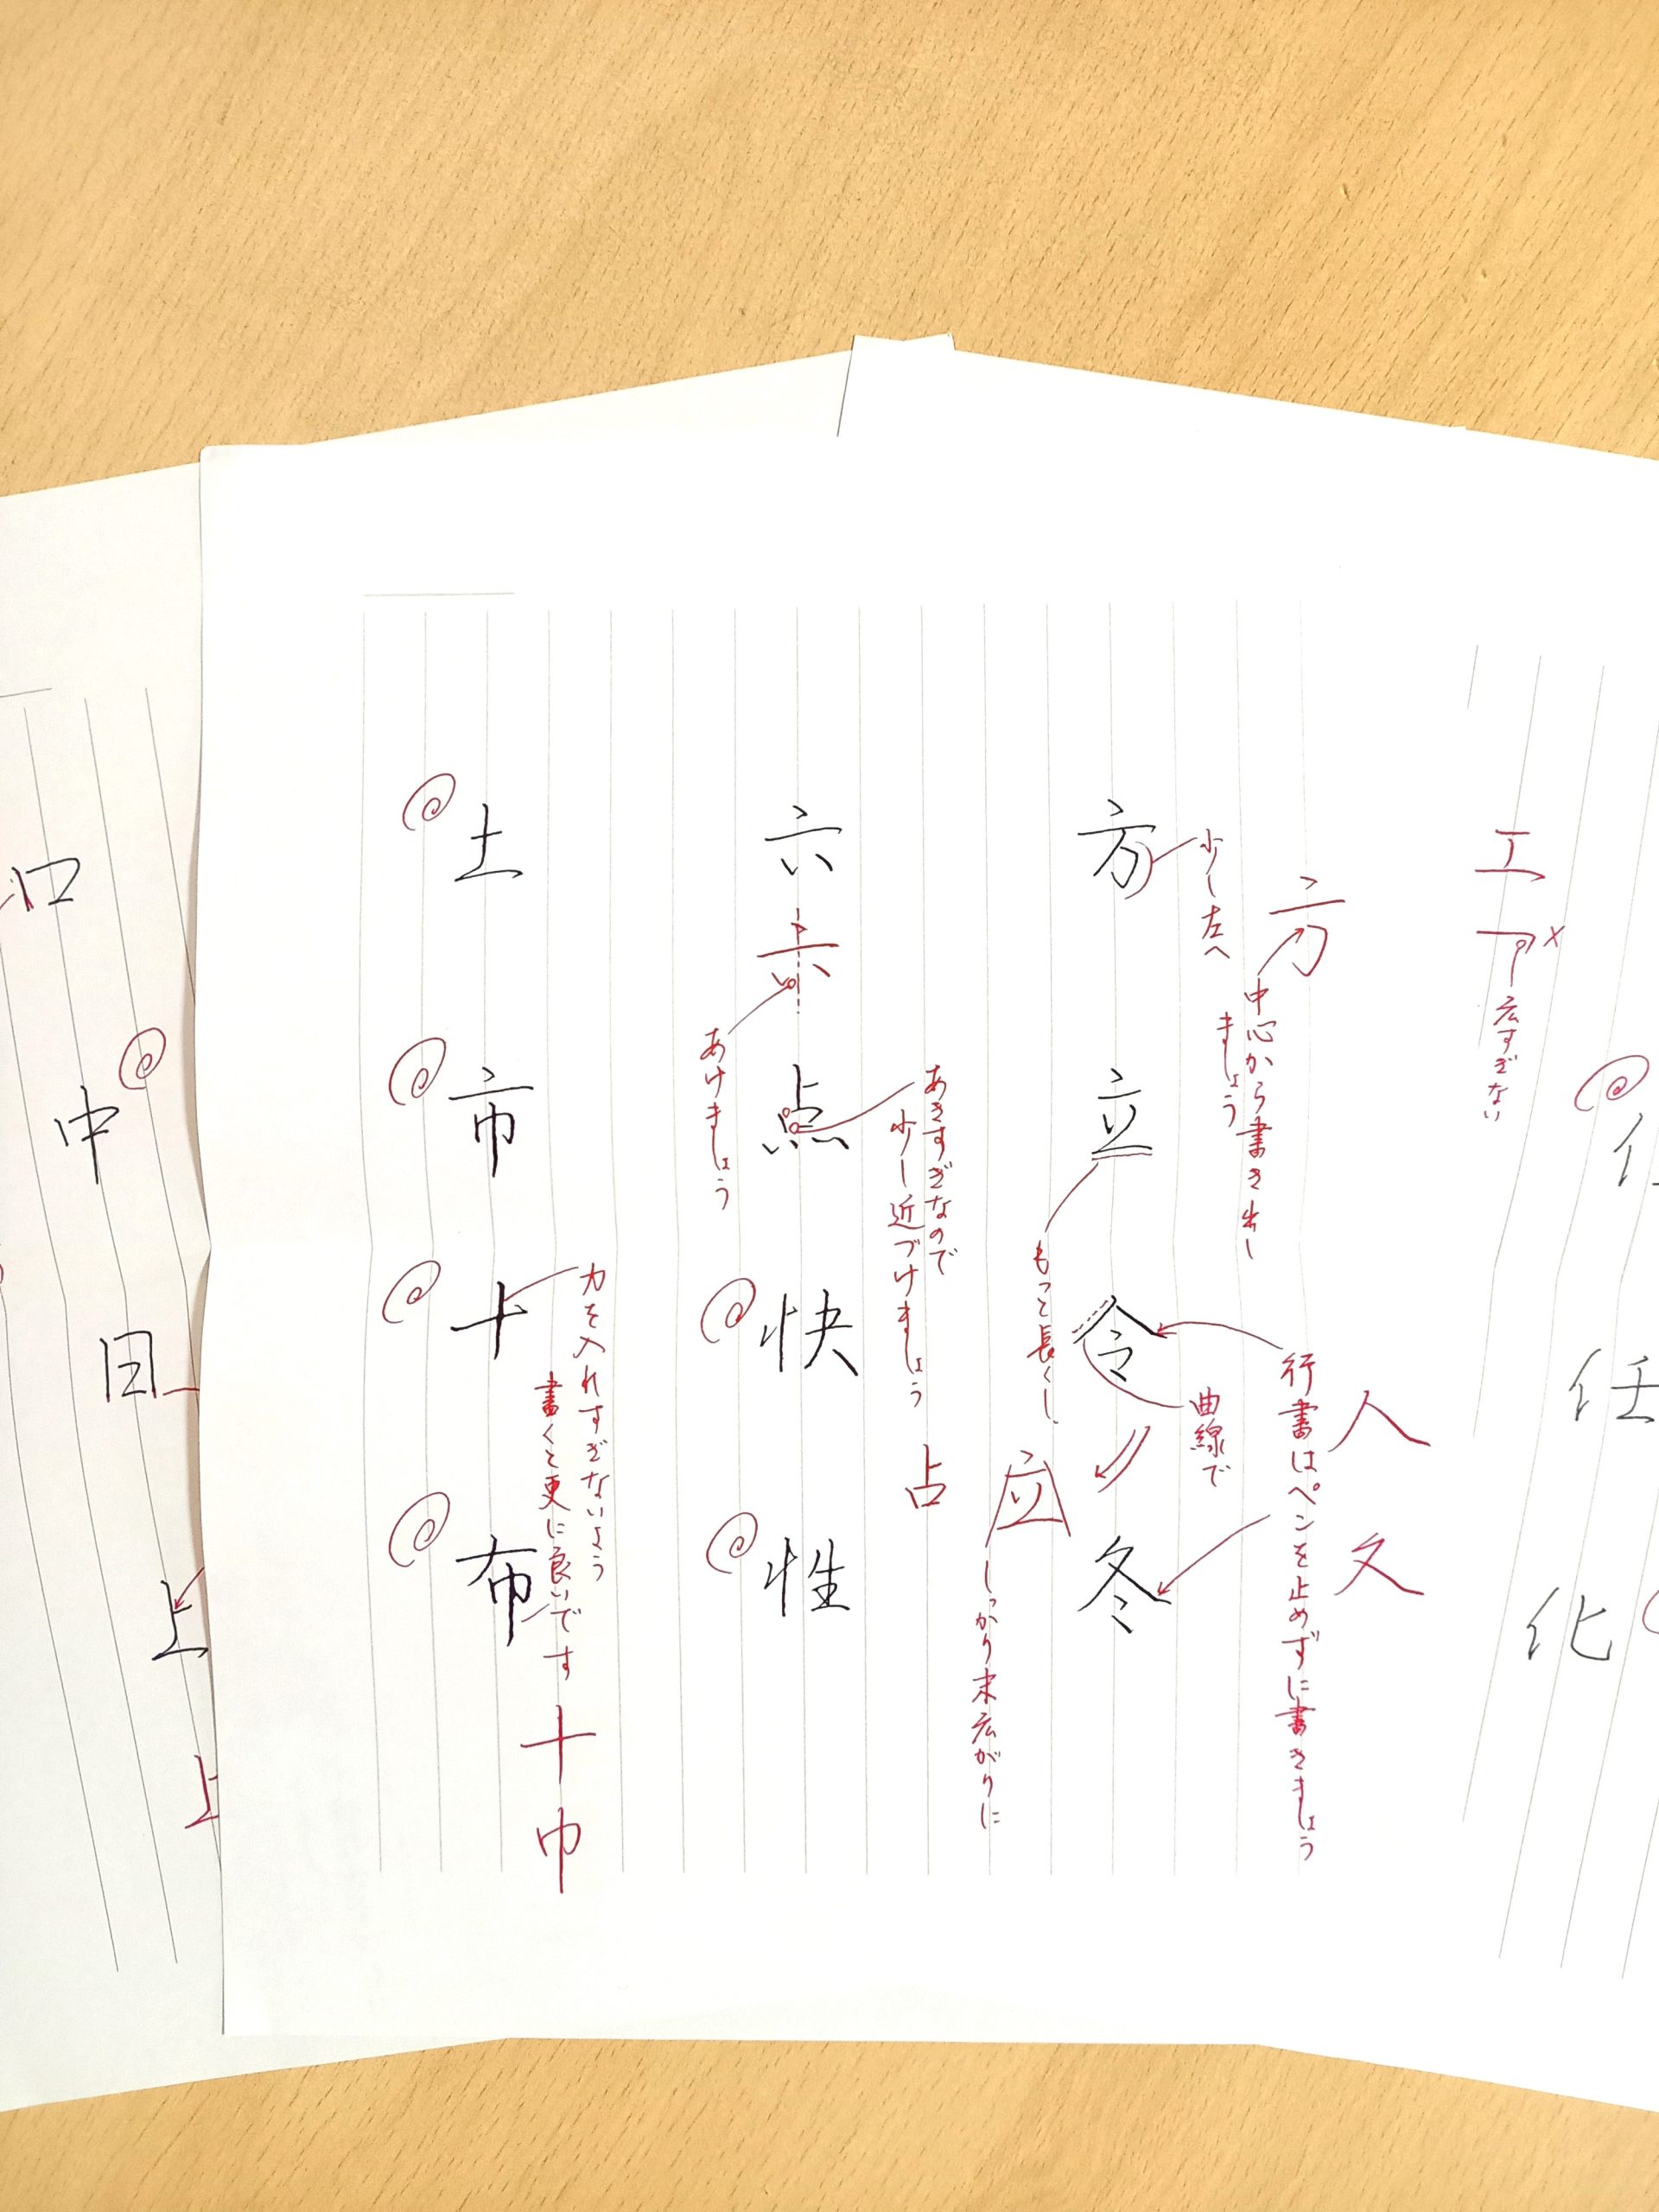 方
立
令
冬
六
点
快
性
土
市
十
布
少し左へ
方
中心から書き出し
ましょう
もっと長くし
立
しっかり末広がりに
曲線で
行書はペンを止めずに書きましょう
人
夂
六
あけましょう
あきすぎなので
少し近づけましょう
占
力を入れすぎないよう
書くと更に良いです
十
巾
エ
広すぎない
任
化
口
中
目
上
上